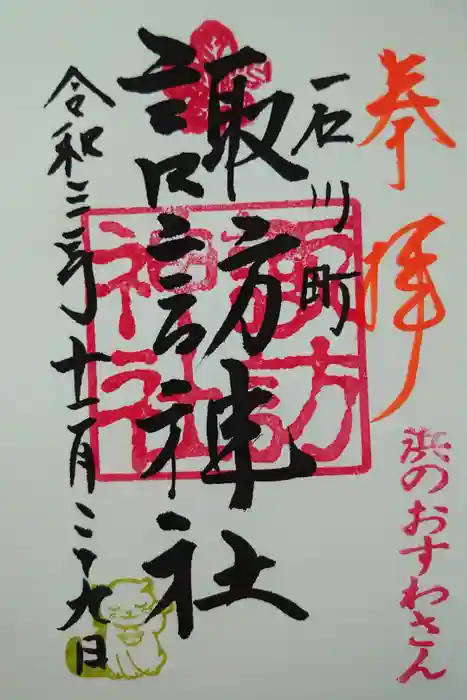 奉拝
浜のおすわさん
石川町
諏訪神社
諏訪
神社
令和三年十二月二十九日